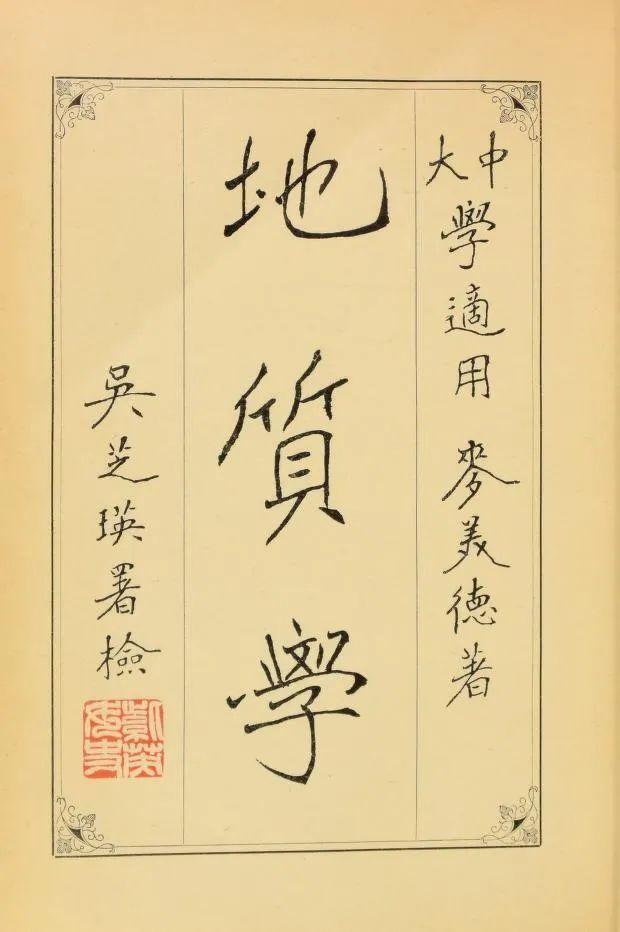 中大學適用 麥美德著
地質學
吳芝瑛署檢